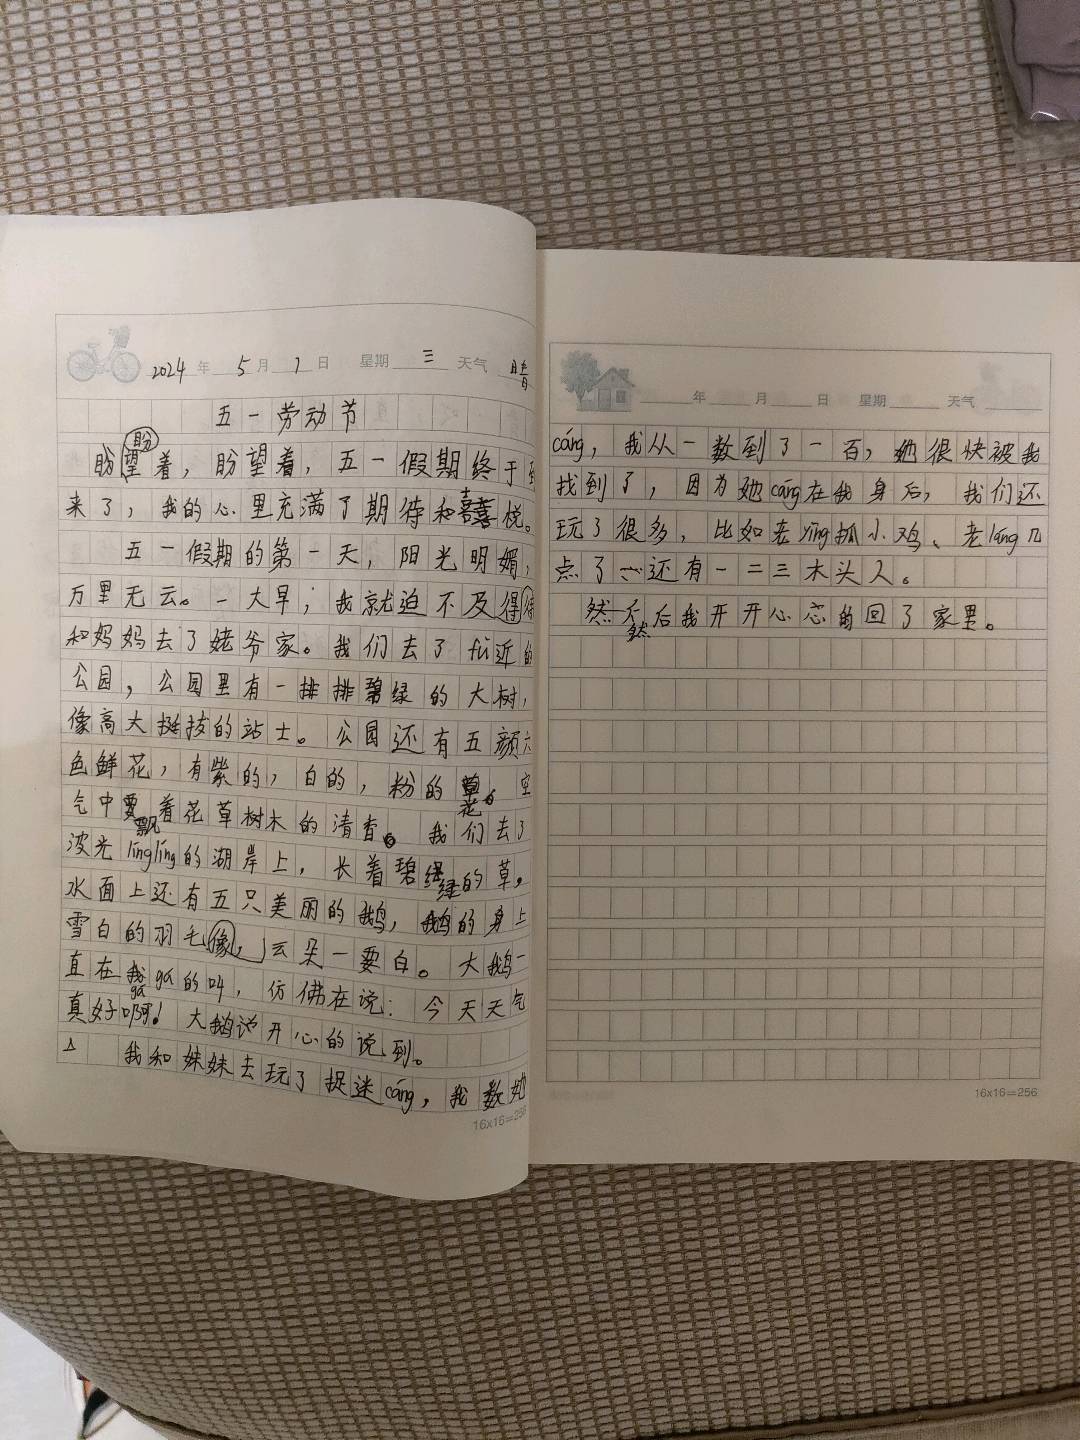 2024年 5月 1日 星期三 天气 晴
五一劳动节
盼
盼望着，盼望着，五一假期终于到
来了，我的心里充满了期待和喜悦。
五一假期的第一天，阳光明媚，
万里无云。一大早，我就迫不及得待
和妈妈去了姥爷家。我们去了fù近的
公园，公园里有一排排碧绿的大树，
像高大挺拔的站士。公园还有五颜六
色鲜花，有紫的，白的，粉的花。空
气中飘着花草树木的清香。我们去了
波光línglíng的湖岸上，长着碧绿的草。
水面上还有五只美丽的鹅，鹅的身上
雪白的羽毛像，云朵一要白。大鹅一
直在gāgā的叫，仿佛在说：今天天气
真好啊！大鹅说开心的说到。
我和妹妹去玩了捉迷cáng，我数她
16x16=256
年 月 日 星期 天气
cáng，我从一数到了一百，她很快被我
找到了，因为她cáng在我身后，我们还
玩了很多，比如老yīng抓小鸡、老láng几
点了还有一二三木头人。
然后我开开心心的回了家里。
16x16=256